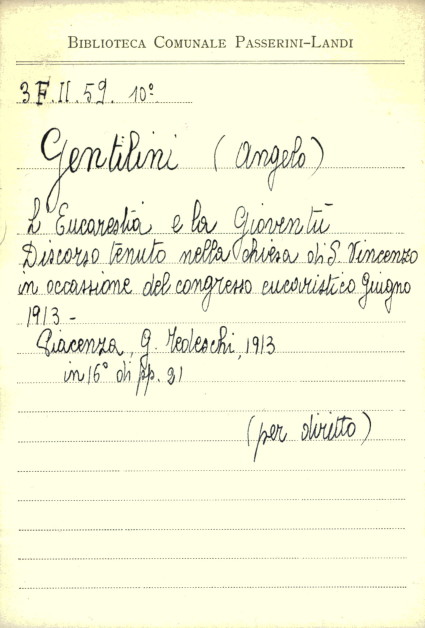 BIBLIOTECA COMUNALE PASSERINI-LANDI
3 F. II. 59. 10°
Gentilini (Angelo)
L'Eucarestia e la Gioventù
Discorso tenuto nella chiesa di S. Vincenzo
in occassione del congresso eucaristico Giugno
1913 -
Piacenza, G. Tedeschi, 1913
in 16° di pp. 21
(per diritto)